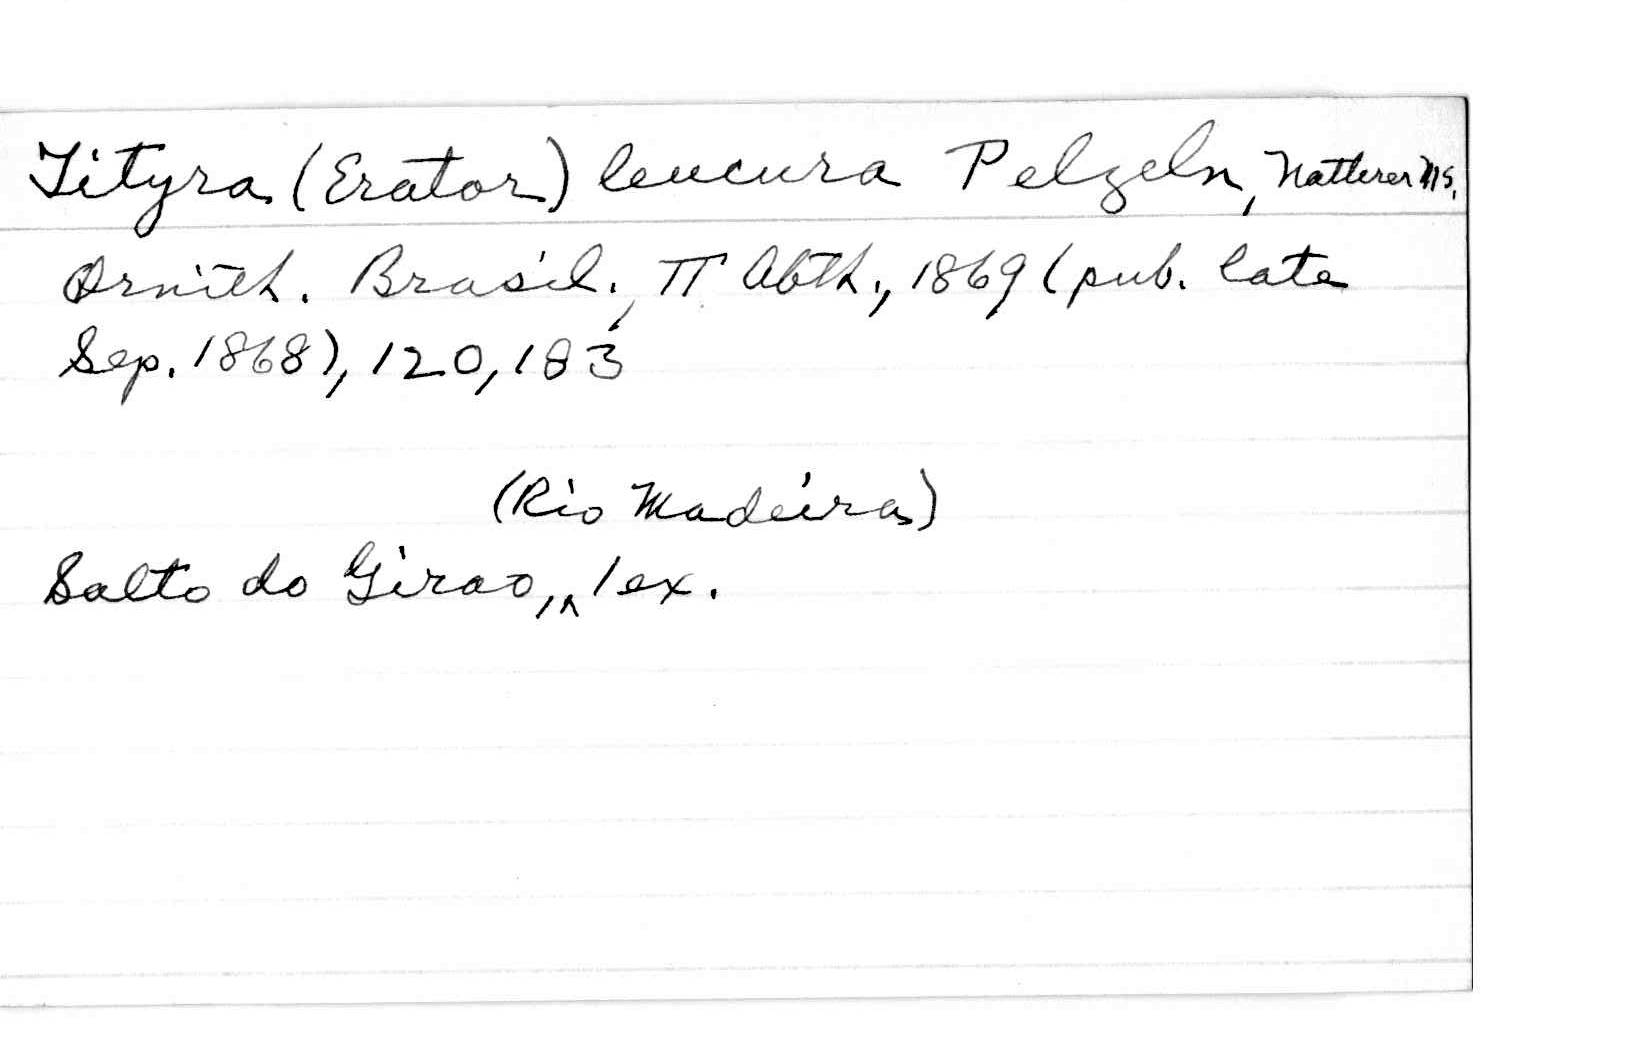 Tityra (Erator) leucura Pelzeln, Natterer MS.
Ornith. Brasil., II Abth., 1869 (pub. late
Sep. 1868), 120, 183
(Rio Madeira)
Salto do Girao, ‸ 1 ex.